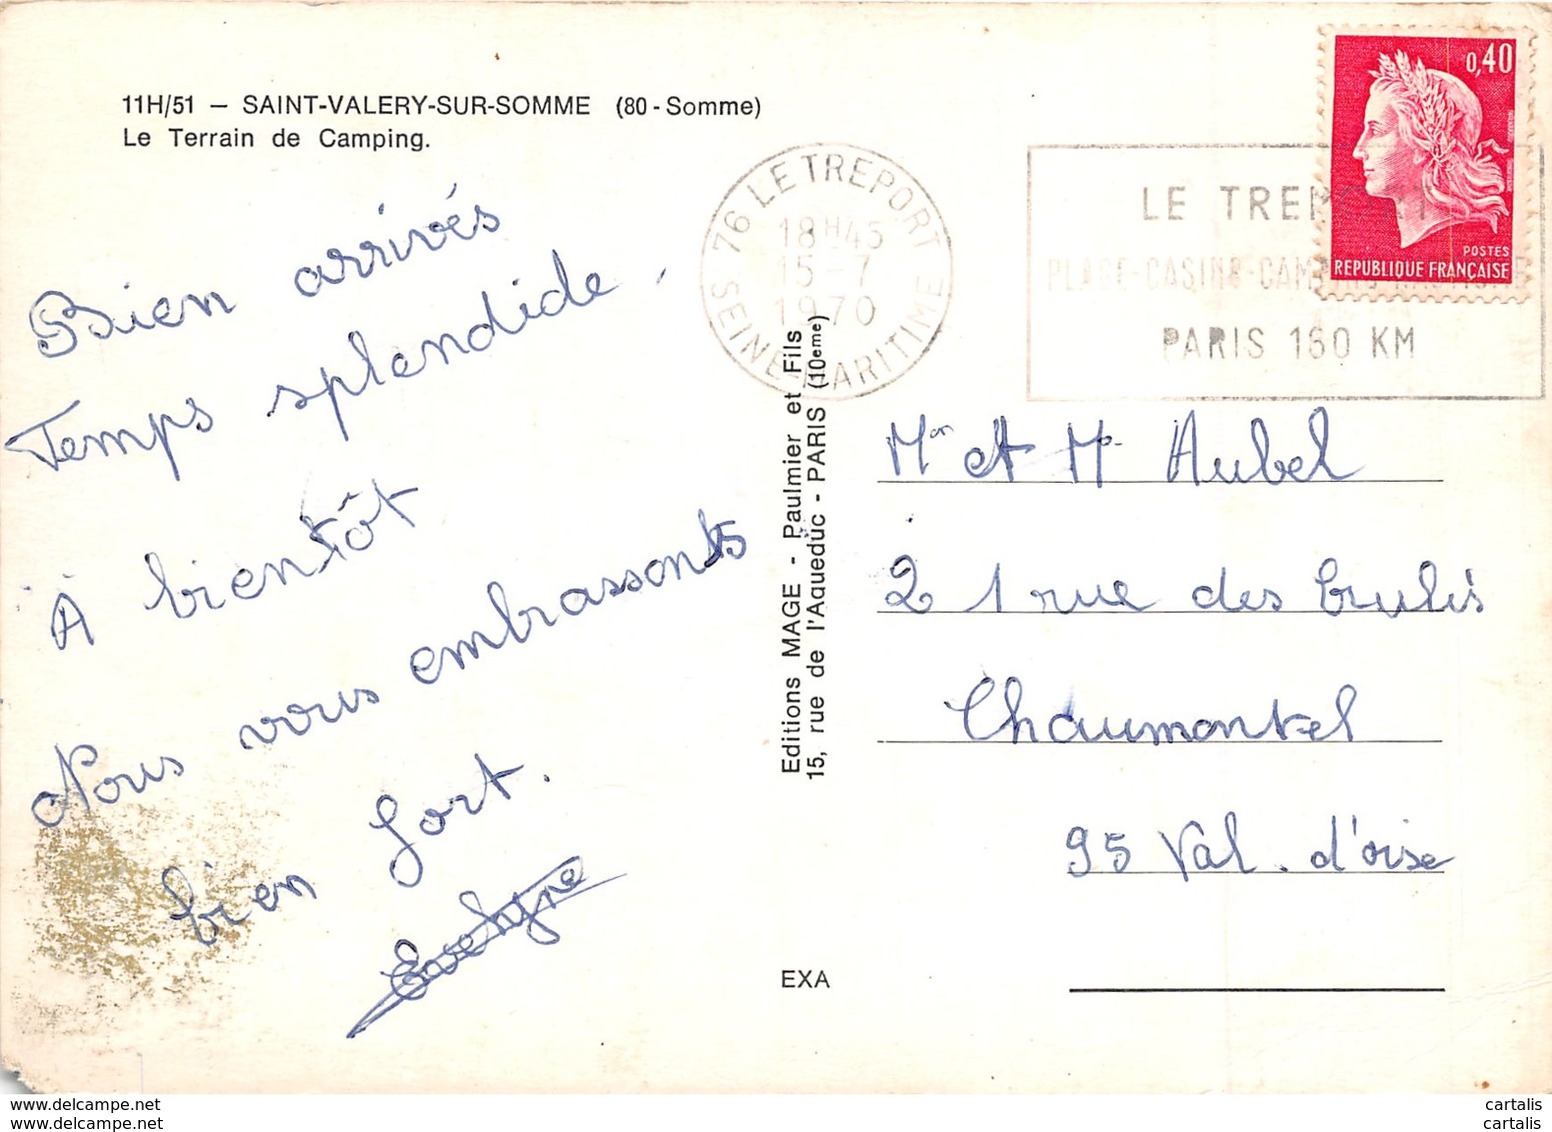 11H/51 — SAINT-VALERY-SUR-SOMME (80 - Somme)
Le Terrain de Camping.
Bien arrivés
Temps splendide.
À bientôt
Nous vous embrassonts
bien fort.
Evelyne
76 LE TREPORT
18H45
15-7
1970
SEINE MARITIME
LE TREPORT
PLAGE-CASINO-CAMPING
PARIS 160 KM
0,40
POSTES
REPUBLIQUE FRANÇAISE
Editions MAGE - Paulmier et Fils
15, rue de l'Aqueduc - PARIS (10eme)
EXA
Mr et Me Aubel
21 rue des brulis
Chaumontel
95 Val. d'oise
www.delcampe.net
www.delcampe.net
cartalis
cartalis